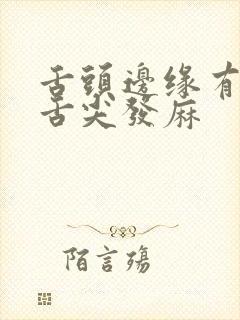 舌頭邊缘有
舌尖發麻
陌言殤